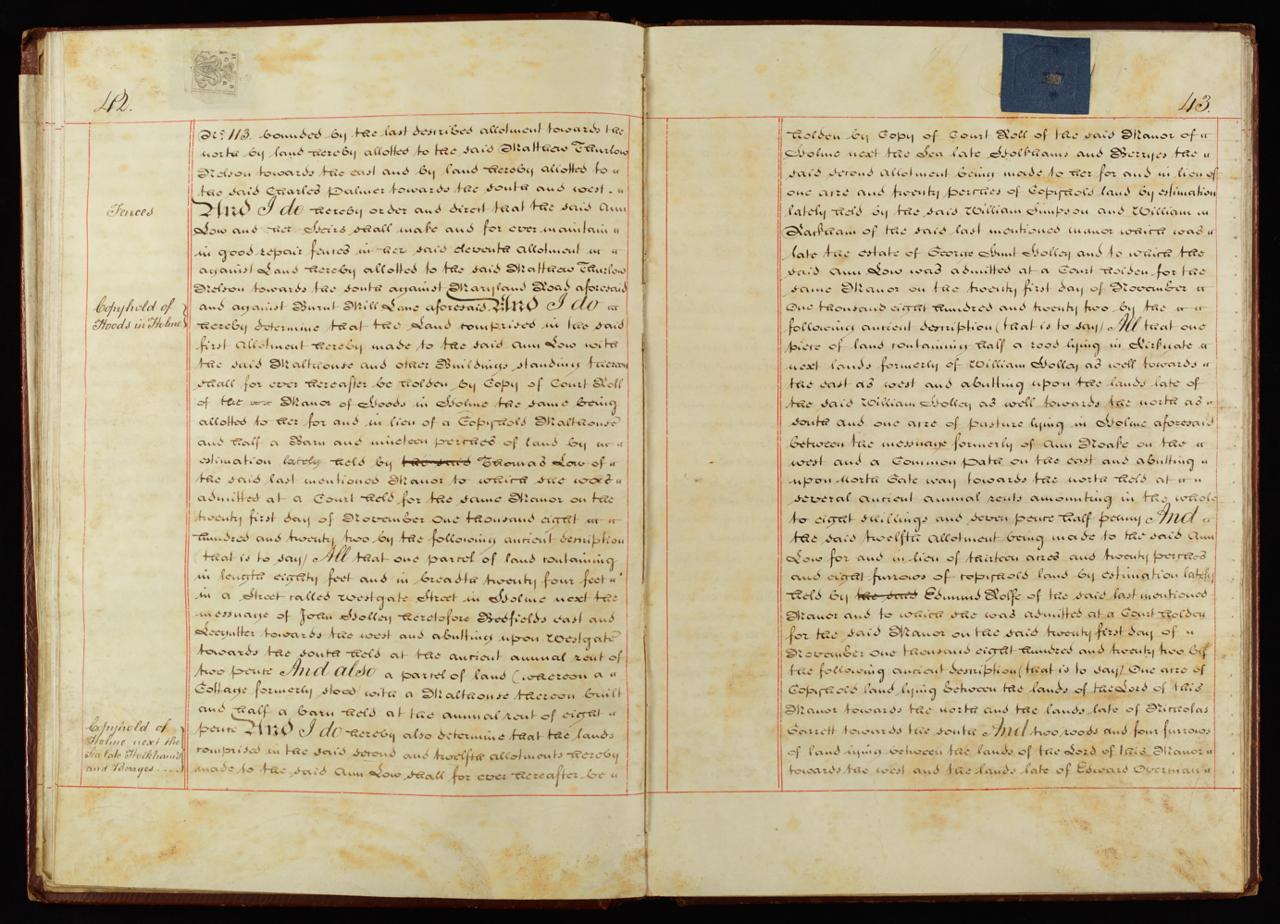 42.
No. 113. bounded by the last described allotment towards the
north by land hereby allotted to the said Matthew Thurlow
Nelson towards the east and by land hereby allotted to "
the said Charles Palmer towards the south and west. "
Fences
And I do hereby order and direct that the said Ann
Low and her Heirs shall make and for ever maintain "
in good repair fences in her said eleventh allotment "
against Land hereby allotted to the said Matthew Thurlow
Nelson towards the south against Maryland Road aforesaid
Copyhold of
Hoods in Holme
and against Burnt Mill Lane aforesaid. And I do "
hereby determine that the Land comprised in the said
first Allotment hereby made to the said Ann Low with
the said Malthouse and other Buildings standing thereon
shall for ever hereafter be holden by Copy of Court Roll
of the Manor of Hoods in Holme the same being
allotted to her for and in lieu of a Copyhold Malthouse
and half a Barn and nineteen perches of land by "
estimation lately held by the said Thomas Low of "
the said last mentioned Manor to which she was "
admitted at a Court held for the same Manor on the
twenty first day of November one thousand eight "
hundred and twenty two by the following ancient description
(that is to say) All that one parcel of land containing
in length eighty feet and in breadth twenty four feet "
in a Street called Westgate Street in Holme next the
messuage of John Holley heretofore Bedfields east and
towards the west and abutting upon Westgate
towards the south held at the ancient annual rent of
two pence And also a parcel of land (whereon a "
Cottage formerly stood with a Malthouse thereon built
and half a barn held at the annual rent of eight "
Copyhold of
Holme next the
Sea late Holkhams
and Berryes ....
pence And I do hereby also determine that the lands
comprised in the said second and twelfth allotments hereby
made to the said Ann Low shall for ever hereafter be "
43.
holden by Copy of Court Roll of the said Manor of "
Holme next the Sea late Holkhams and Berryes the "
said second allotment being made to her for and in lieu of
one acre and twenty perches of Copyhold land by estimation
lately held by the said William Simpson and William "
Rackham of the said last mentioned manor which was "
late the estate of George Hunt Holley and to which the
said Ann Low was admitted at a Court holden for the
same Manor on the twenty first day of November "
One thousand eight hundred and twenty two by the "
following ancient description (that is to say) All that one
piece of land containing half a rood lying in Kirkgate "
next lands formerly of William Holley as well towards "
the east as west and abutting upon the lands late of
the said William Holley as well towards the north as "
south and one acre of pasture lying in Holme aforesaid
between the messuage formerly of Ann Noake on the "
west and a Common Path on the east and abutting "
upon North Gate way towards the north held at "
several ancient annual rents amounting in the whole
to eight shillings and seven pence half penny And "
the said twelfth Allotment being made to the said Ann
Low for and in lieu of thirteen acres and twenty perches
and eight furrows of copyhold land by estimation lately
held by the said Edmund Rolfe of the said last mentioned
Manor and to which she was admitted at a Court holden
for the said Manor on the said twenty first day of "
November one thousand eight hundred and twenty two by
the following ancient description (that is to say) One acre of
Copyhold land lying between the lands of the Lord of this
Manor towards the north and the lands late of Nicholas
Garrett towards the south And two roods and four furrows
of land lying between the lands of the Lord of this Manor "
towards the west and the lands late of Edward Overman "